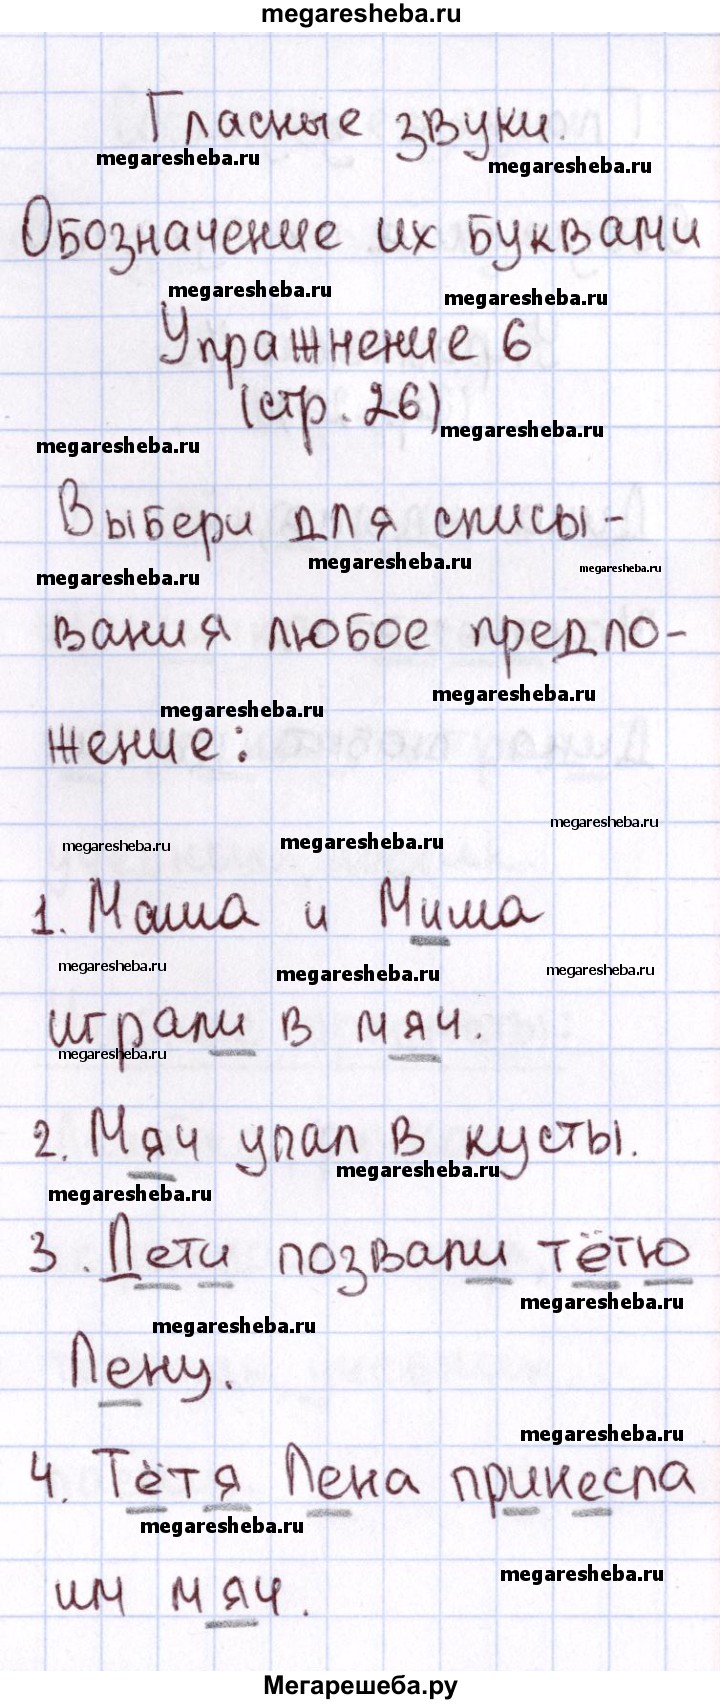 megaresheba.ru
Гласные звуки.
megaresheba.ru
megaresheba.ru
Обозначение их буквами
megaresheba.ru
megaresheba.ru
Упражнение 6
(стр. 26)
megaresheba.ru
megaresheba.ru
Выбери для списы-
megaresheba.ru
megaresheba.ru
megaresheba.ru
вания любое предло-
megaresheba.ru
megaresheba.ru
жение:
megaresheba.ru
megaresheba.ru
megaresheba.ru
1. Маша и Миша
megaresheba.ru
megaresheba.ru
megaresheba.ru
играли в мяч.
megaresheba.ru
2. Мяч упал в кусты.
megaresheba.ru
megaresheba.ru
3. Дети позвали тётю
megaresheba.ru
megaresheba.ru
Лену.
megaresheba.ru
4. Тётя Лена принесла
megaresheba.ru
megaresheba.ru
им мяч.
Мегарешеба.ру